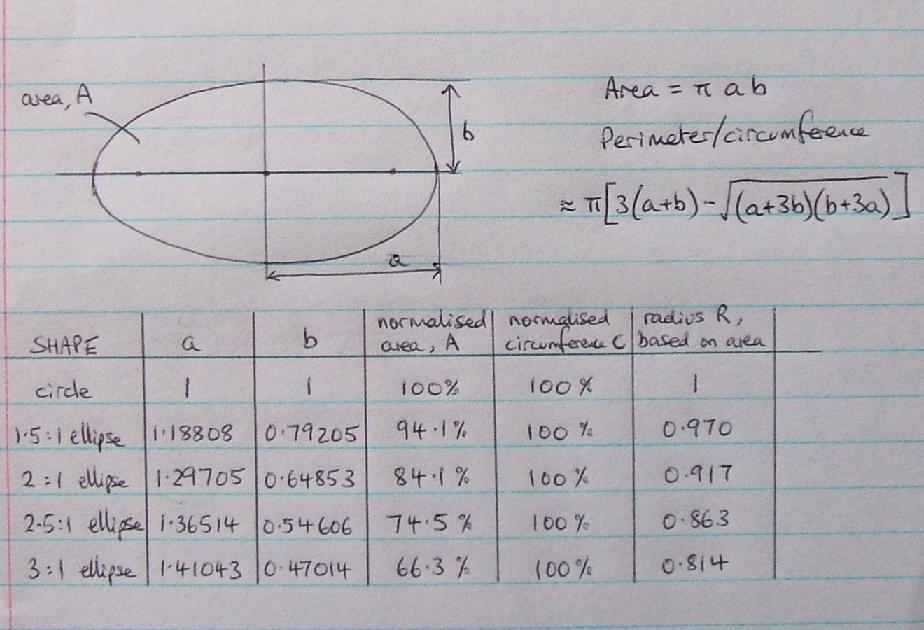 area, A
b
a
Area = π a b
Perimeter/circumference
≈ π[3(a+b) - √(a+3b)(b+3a)]
SHAPE a b normalised area, A normalised circumference C radius R, based on area
circle 1 1 100% 100% 1
1·5:1 ellipse 1·18808 0·79205 94·1% 100% 0·970
2:1 ellipse 1·29705 0·64853 84·1% 100% 0·917
2·5:1 ellipse 1·36514 0·54606 74·5% 100% 0·863
3:1 ellipse 1·41043 0·47014 66·3% 100% 0·814